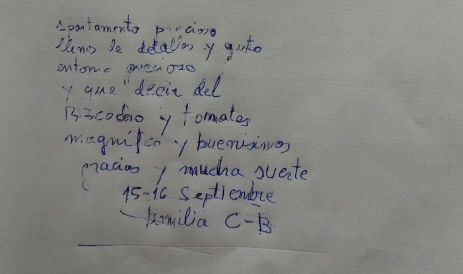 apartamento precioso
llenos de detalles y gusto
entorno precioso
y que decir del
Bizcocho y tomates
magnífico y buenísimos
gracias y mucha suerte
15-16 Septiembre
familia C-B